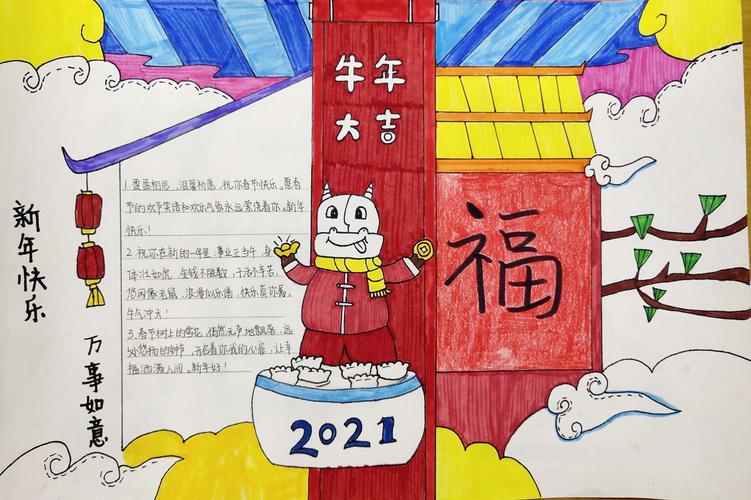 牛年
大吉
新年快乐
万事如意
1.虔诚相思,温馨祈愿,祝你春节快乐。愿春
节的欢声笑语和欢乐气氛永远萦绕着你。新年
快乐!
2.祝你在新的一年里:事业正当午,身
体壮如虎,金钱不胜数,干活不辛苦,
悠闲像老鼠,浪漫似乐谱,快乐莫你属。
牛气冲天!
3.春节树上的雪花,悄然无声地飘落,远
处悠扬的钟声,开启着你我的心窗,让幸
福洒满人间。新年好!
福
2021